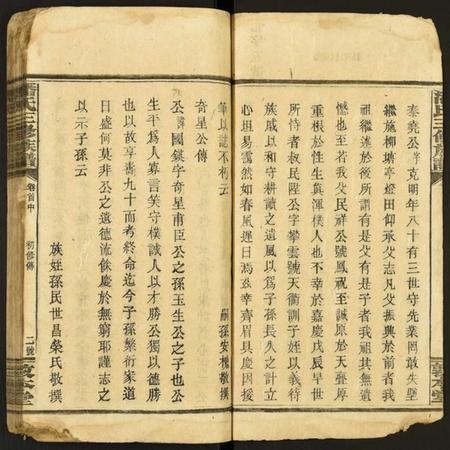 泰堯公字克明年八十有三世守先業罔敢失墜
繼施柳塘亭燈田仰承父志凡父振興於前者我
祖繼述於後所謂有是父有是子者我祖其無遺
憾也至若我父民祥公號鳳祝至誠原於天亶厚
重根於性生與渾樸人也不幸於嘉慶戊辰早世
所恃者叔民陞公字攀雲號天衢訓子姪以義待
族戚以和守耕讀之遺風以為子孫長久之計立
心坦易靄然如春風運日鴻
案齊眉具慶因援
筆以誌不朽云
嗣孫安槐敬撰
奇星公傳
公諱國鎮字奇星甫臣公之孫玉生公之子也公
生平為人寡言笑守樸誠人以才勝公獨以德勝
也以故享壽九十而考終命迄今子孫繁衍家道
日盛何莫非公之遺德流餘慶於無窮耶謹志之
以示子孫云
族姪孫民世昌榮氏敬撰
潘氏三修族譜
卷首中
初修傳
二號
敦本堂